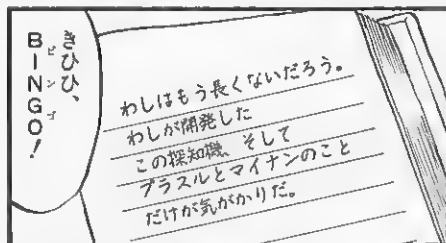 きひひ、
BINGO!
ビンゴ
わしはもう長くないだろう。
わしが開発した
この探知機、そして
プラスルとマイナンのこと
だけが気がかりだ。